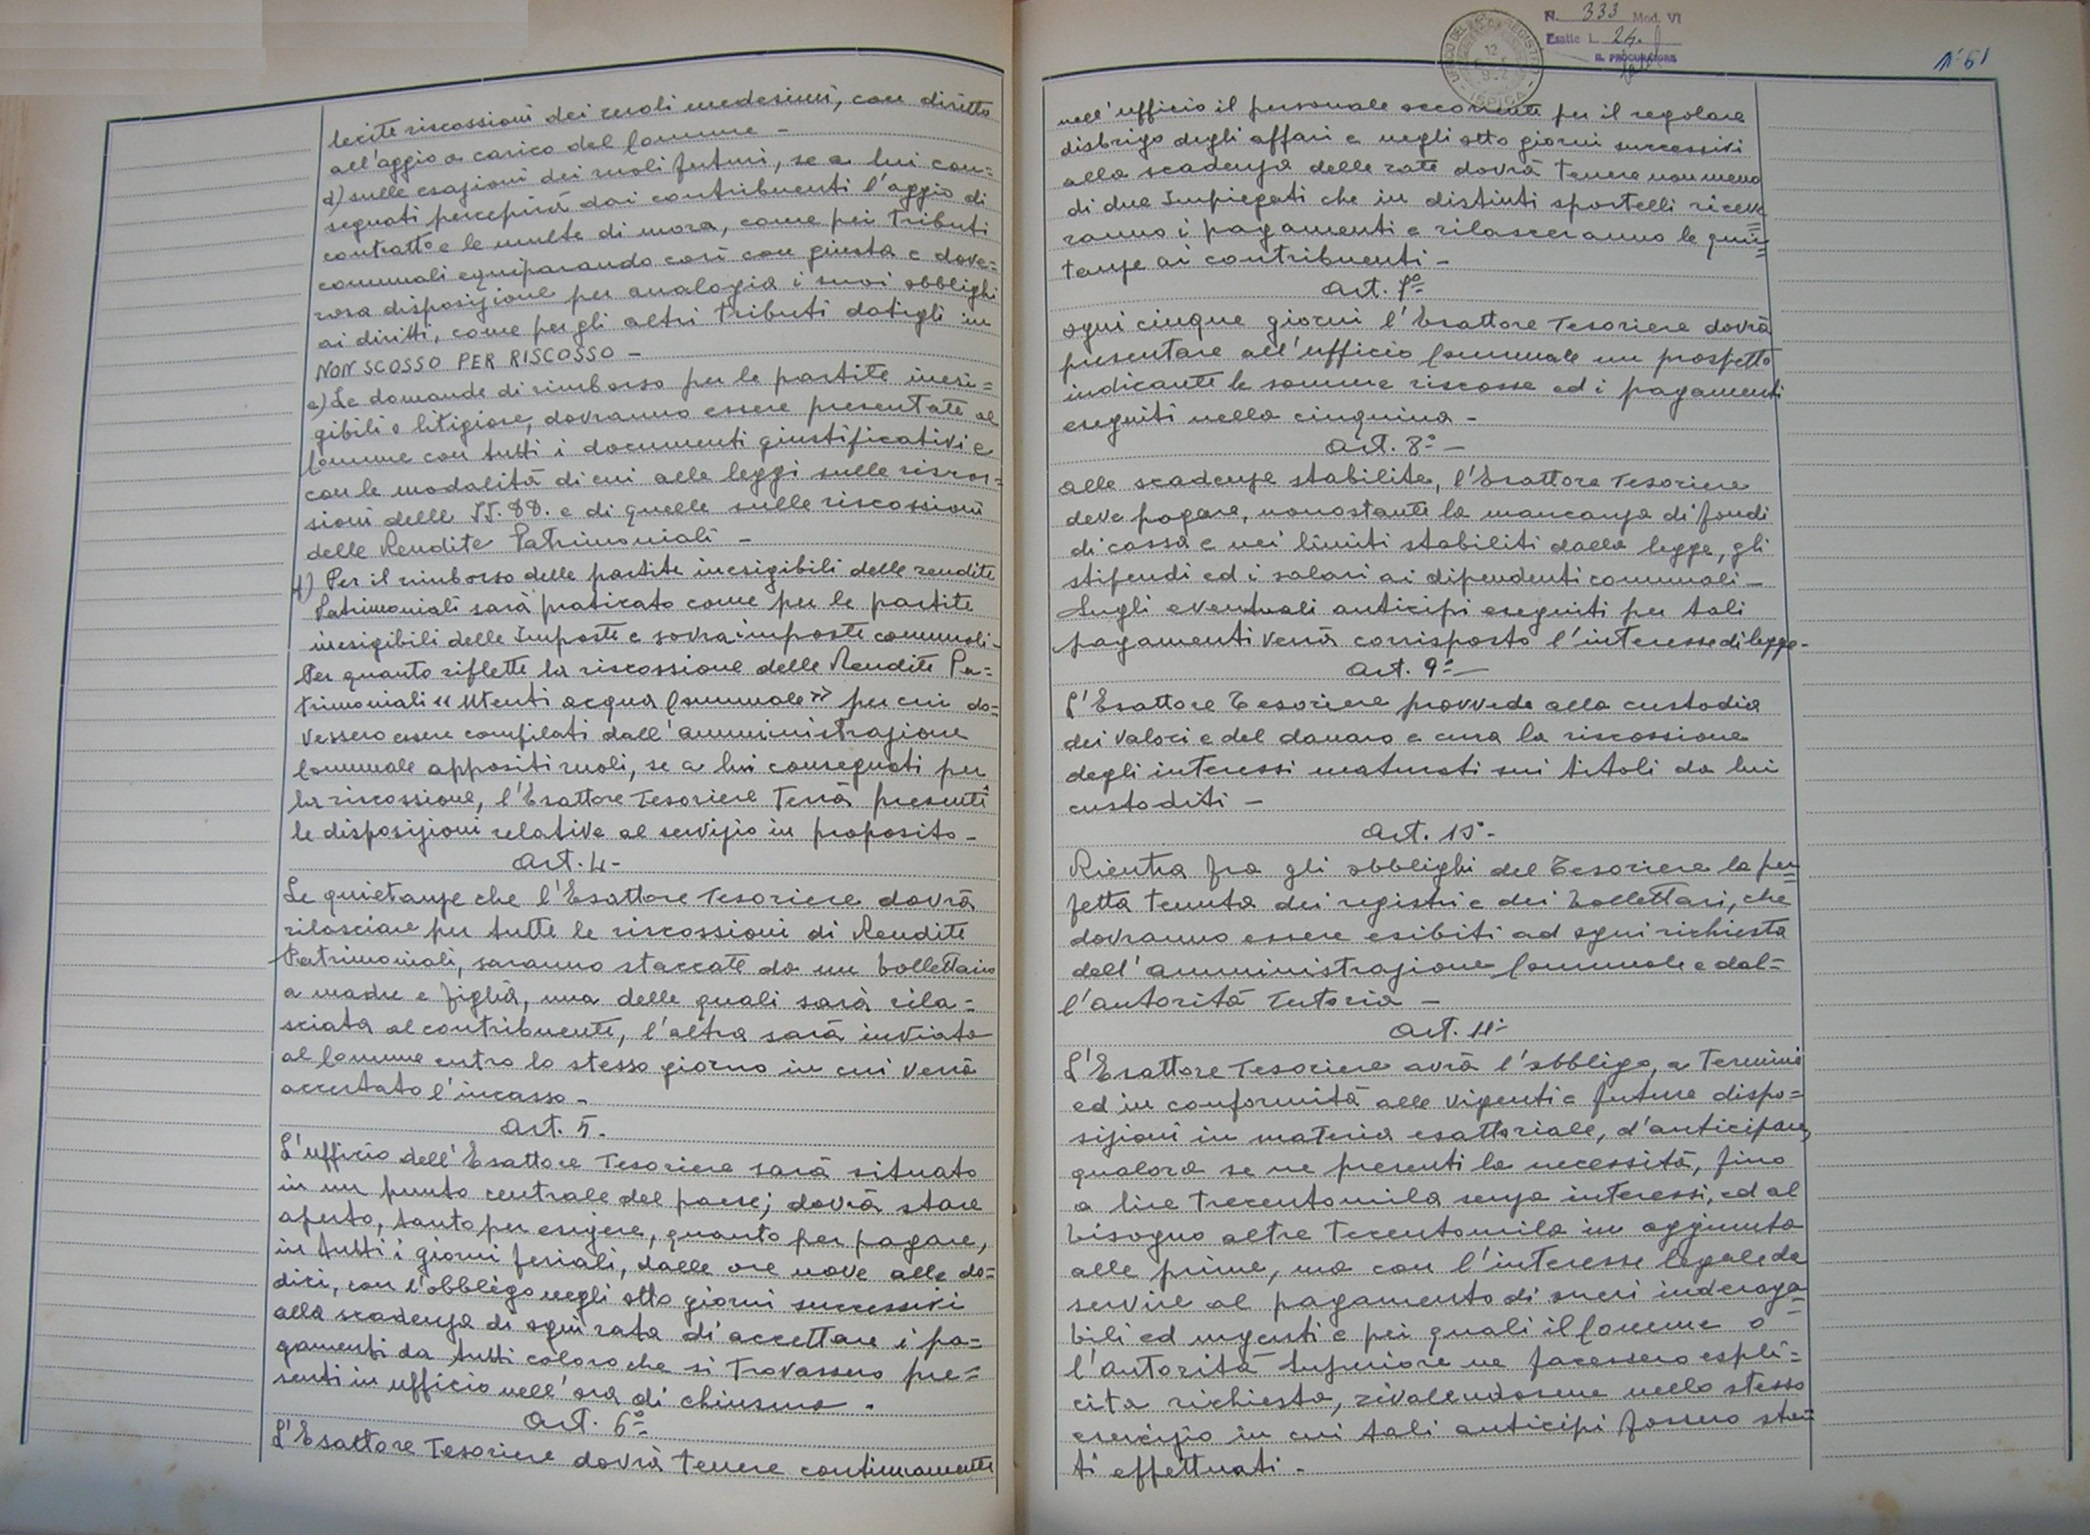 lecite riscossioni dei ruoli medesimi, con diritto
all'aggio a carico del Comune -
d) sulle esazioni dei ruoli futuri, se a lui con=
segnati percepirà dai contribuenti l'aggio di
contratto e le multe di mora, come pei tributi
comunali equiparando così con giusta e dove=
rosa disposizione per analogia i suoi obblighi
ai diritti, come per gli altri tributi datigli in
NON SCOSSO PER RISCOSSO -
e) Le domande di rimborso per le partite inesi=
gibili o litigiose, dovranno essere presentate al
Comune con tutti i documenti giustificativi e
con le modalità di cui alle leggi sulle riscos=
sioni delle II.DD. e di quelle sulle riscossioni
delle Rendite Patrimoniali -
f) Per il rimborso delle partite inesigibili delle rendite
Patrimoniali sarà praticato come per le partite
inesigibili delle Imposte e sovraimposte comunali -
Per quanto riflette la riscossione delle Rendite Pa=
trimoniali « Utenti acqua Comunale » per cui do=
vessero essere compilati dall'amministrazione
Comunale appositi ruoli, se a lui consegnati per
la riscossione, l'Esattore Tesoriere terrà presenti
le disposizioni relative al servizio in proposito -
Art. 4 -
Le quietanze che l'Esattore Tesoriere dovrà
rilasciare per tutte le riscossioni di Rendite
Patrimoniali, saranno staccate da un bollettario
a madre e figlia, una delle quali sarà rila=
sciata al contribuente, l'altra sarà inviata
al Comune entro lo stesso giorno in cui verrà
accertato l'incasso -
Art. 5 -
L'ufficio dell'Esattore Tesoriere sarà situato
in un punto centrale del paese; dovrà stare
aperto, tanto per esigere, quanto per pagare,
in tutti i giorni feriali, dalle ore nove alle do=
dici, con l'obbligo negli otto giorni successivi
alla scadenza di ogni rata di accettare i pa=
gamenti da tutti coloro che si trovassero pre=
senti in ufficio nell'ora di chiusura -
Art. 6° -
L'Esattore Tesoriere dovrà tenere continuamente
N. 333 Mod. VI
Esatte L. 24.
IL PROCURATORE
UFFICIO DEL REGISTRO
12
ISPICA
N° 61
nell'ufficio il personale occorrente per il regolare
disbrigo degli affari e negli otto giorni successivi
alla scadenza delle rate dovrà tenere non meno
di due Impiegati che in distinti sportelli riceve=
ranno i pagamenti e rilasceranno le quie=
tanze ai contribuenti -
Art. 7° -
Ogni cinque giorni l'Esattore Tesoriere dovrà
presentare all'ufficio Comunale un prospetto
indicante le somme riscosse ed i pagamenti
eseguiti nella cinquina -
Art. 8° -
Alle scadenze stabilite, l'Esattore Tesoriere
deve pagare, nonostante la mancanza di fondi
di cassa e nei limiti stabiliti dalla legge, gli
stipendi ed i salari ai dipendenti comunali -
Sugli eventuali anticipi eseguiti per tali
pagamenti verrà corrisposto l'interesse di legge -
Art. 9° -
L'Esattore Tesoriere provvede alla custodia
dei valori e del danaro e cura la riscossione
degli interessi maturati sui titoli da lui
custoditi -
Art. 10° -
Rientra fra gli obblighi del Tesoriere la per=
fetta tenuta dei registri e dei bollettari, che
dovranno essere esibiti ad ogni richiesta
dell'amministrazione Comunale e dal=
l'autorità tutoria -
Art. 11° -
L'Esattore Tesoriere avrà l'obbligo, a termini
ed in conformità alle vigenti e future dispo=
sizioni in materia esattoriale, d'anticipare,
qualora se ne presenti la necessità, fino
a lire trecentomila senza interessi, ed al
bisogno altre trecentomila in aggiunta
alle prime, ma con l'interesse legale da
servire al pagamento di oneri inderoga=
bili ed urgenti e pei quali il Comune o
l'Autorità Superiore ne facessero espli=
cita richiesta, rivalendosene nello stesso
esercizio in cui tali anticipi fossero sta=
ti effettuati -